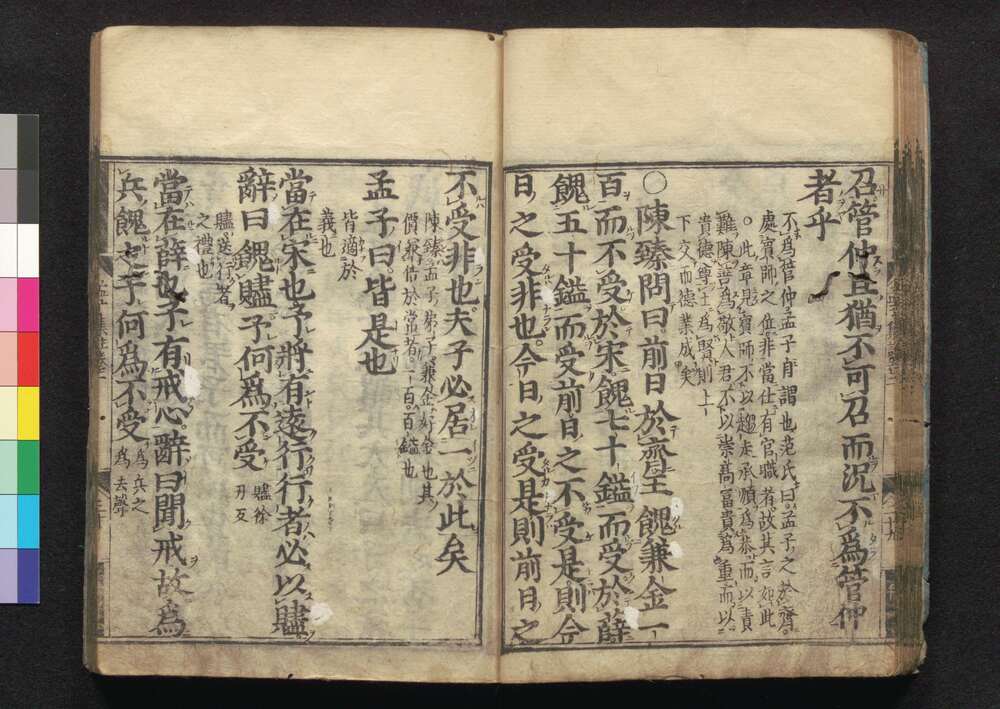 召管仲且猶不可召而況不爲管仲
者乎
不爲管仲孟子自謂也范氏曰孟子之於齊
處賓師之位非當仕有官職者故其言如此
○此章見賓師不以趨走承順爲恭而以責
難陳善爲敬人君不以崇高富貴爲重而以
貴德尊士爲賢則上
下交而德業成矣
○陳臻問曰前日於齊王餽兼金一
百而不受於宋餽七十鎰而受於薛
餽五十鎰而受前日之不受是則今
日之受非也今日之受是則前日之
不受非也夫子必居一於此矣
陳臻孟子弟子兼金好金也其
價兼倍於常者一百百鎰也
孟子曰皆是也
皆適於
義也
當在宋也予將有遠行行者必以贐
辭曰餽贐予何爲不受
贐徐
刃反
贐送行者
之禮也
當在薛也予有戒心辭曰聞戒故爲
兵餽之予何爲不受
爲兵之
爲去聲